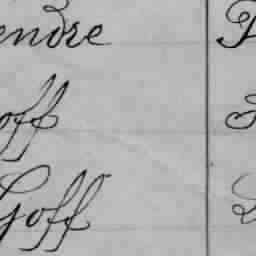 endre
off
Goff